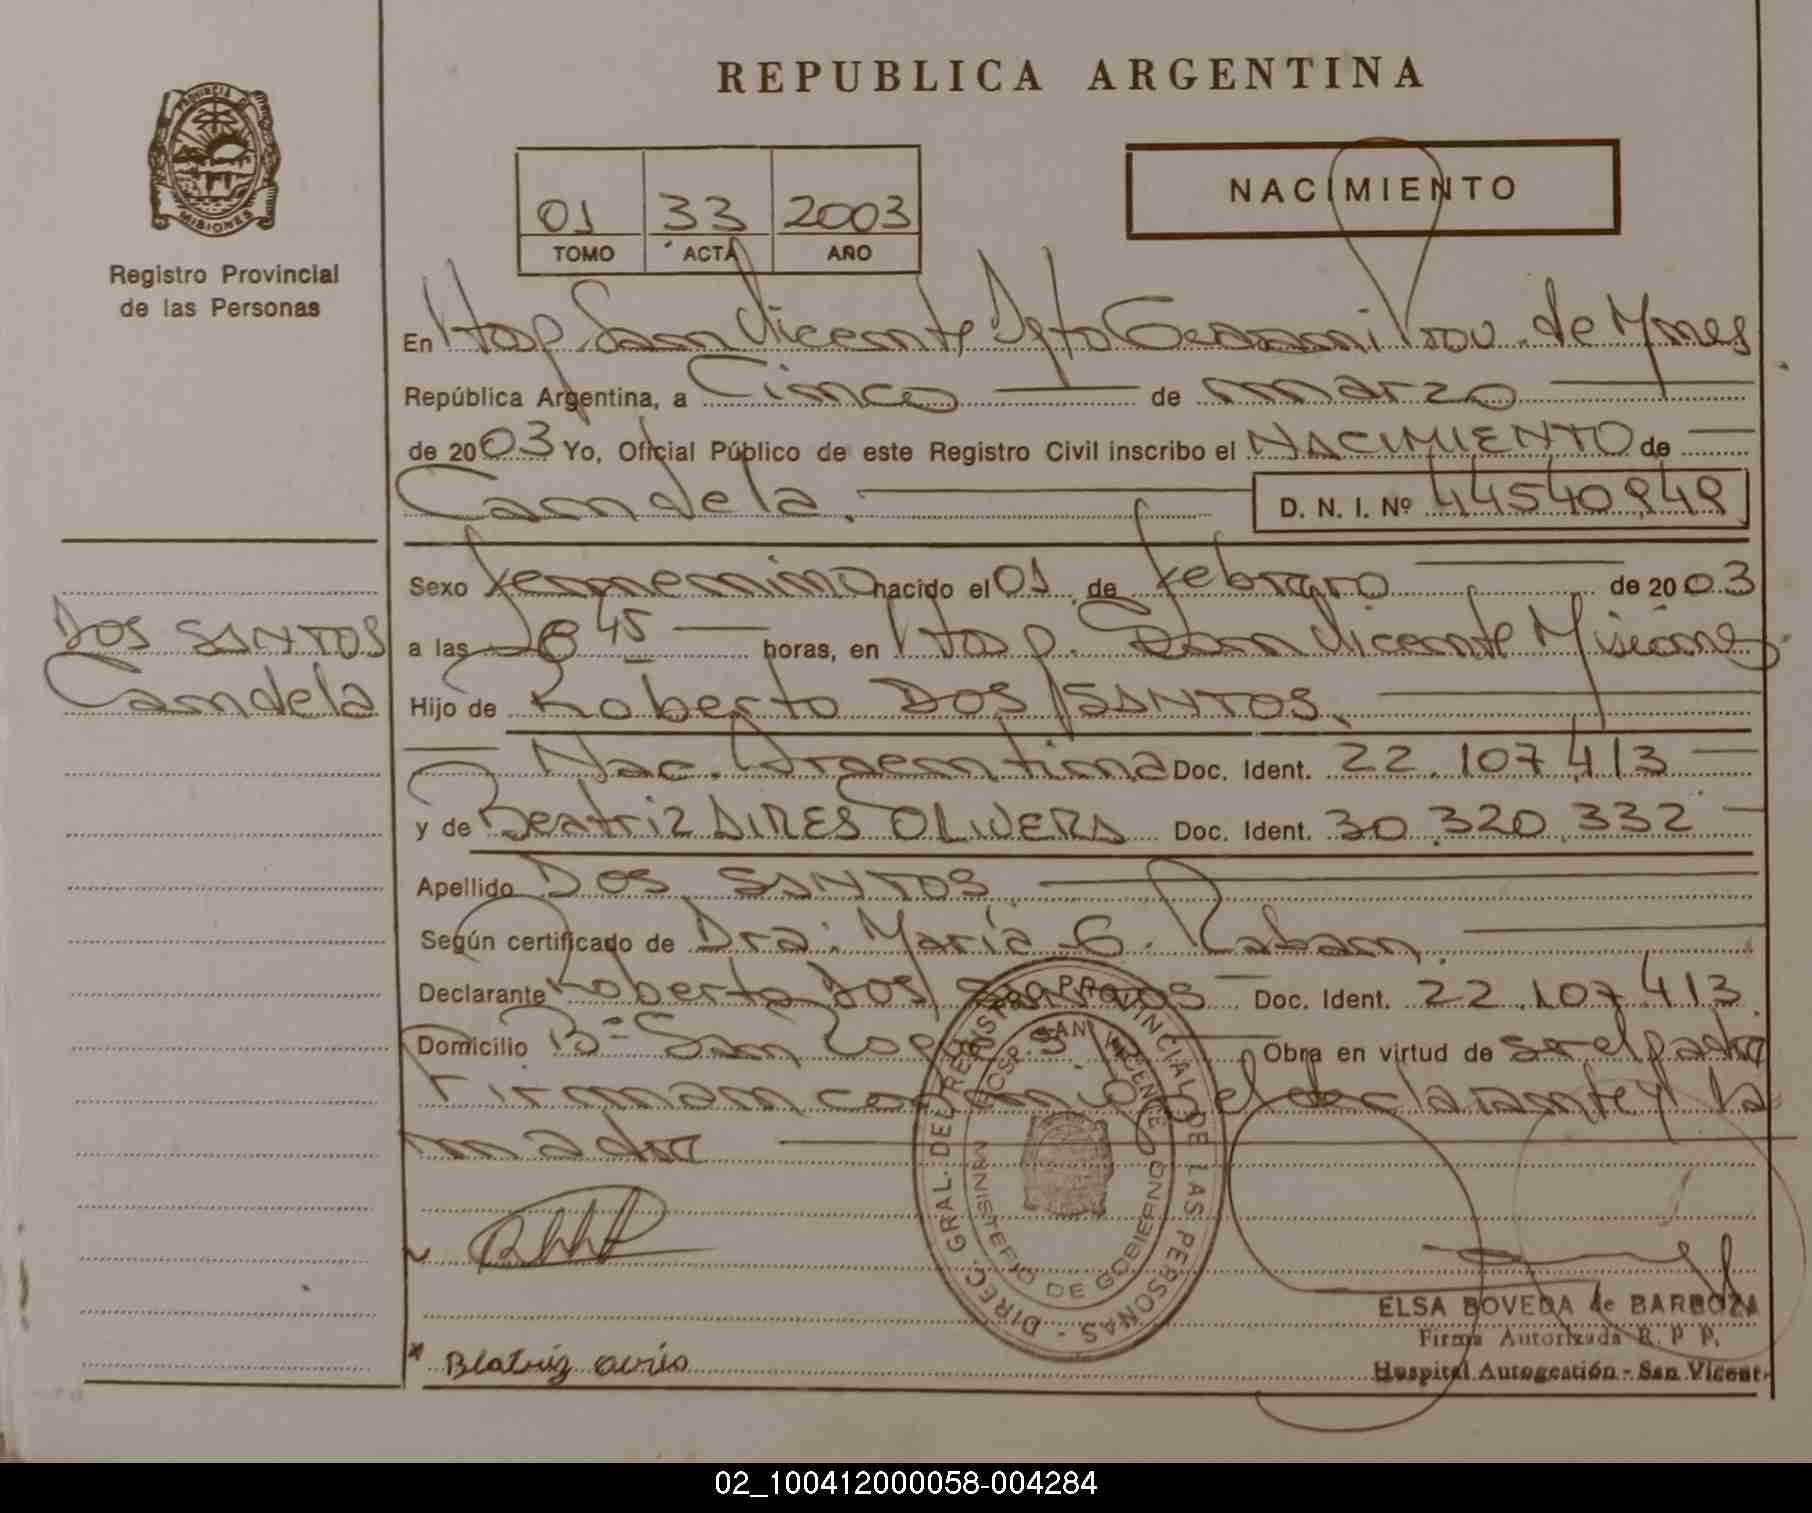 REPUBLICA ARGENTINA
PROVINCIA DE
MISIONES
Registro Provincial
de las Personas
01 33 2003
TOMO ACTA AÑO
NACIMIENTO
En Hosp. San Vicente Dpto Guarani Prov. de Mnes
República Argentina, a Cinco de marzo
de 2003 Yo, Oficial Público de este Registro Civil inscribo el NACIMIENTO de
Candela. D. N. I. Nº 44540949
Sexo femenino nacido el 01 de febrero de 2003
DOS SANTOS
Candela
a las 45 horas, en Hosp. San Vicente Misiones
Hijo de Roberto DOS SANTOS.
Nac. Argentina Doc. Ident. 22.107.413
y de Beatriz AIRES OLIVERA Doc. Ident. 30.320.332
Apellido DOS SANTOS
Según certificado de Dra. María G. Raban
Declarante Roberto DOS SANTOS Doc. Ident. 22.107.413
Domicilio Bº San Obra en virtud de ser el padre
Firman conmigo el declarante y la
madre
DIREC. GRAL. DEL REGISTRO PROVINCIAL DE LAS PERSONAS
HOSP. SAN VICENTE
MINISTERIO DE GOBIERNO
ELSA BOVEDA de BARBOZA
Firma Autorizada R. P. P.
Hospital Autogestión - San Vicent
Beatriz
02_100412000058-004284